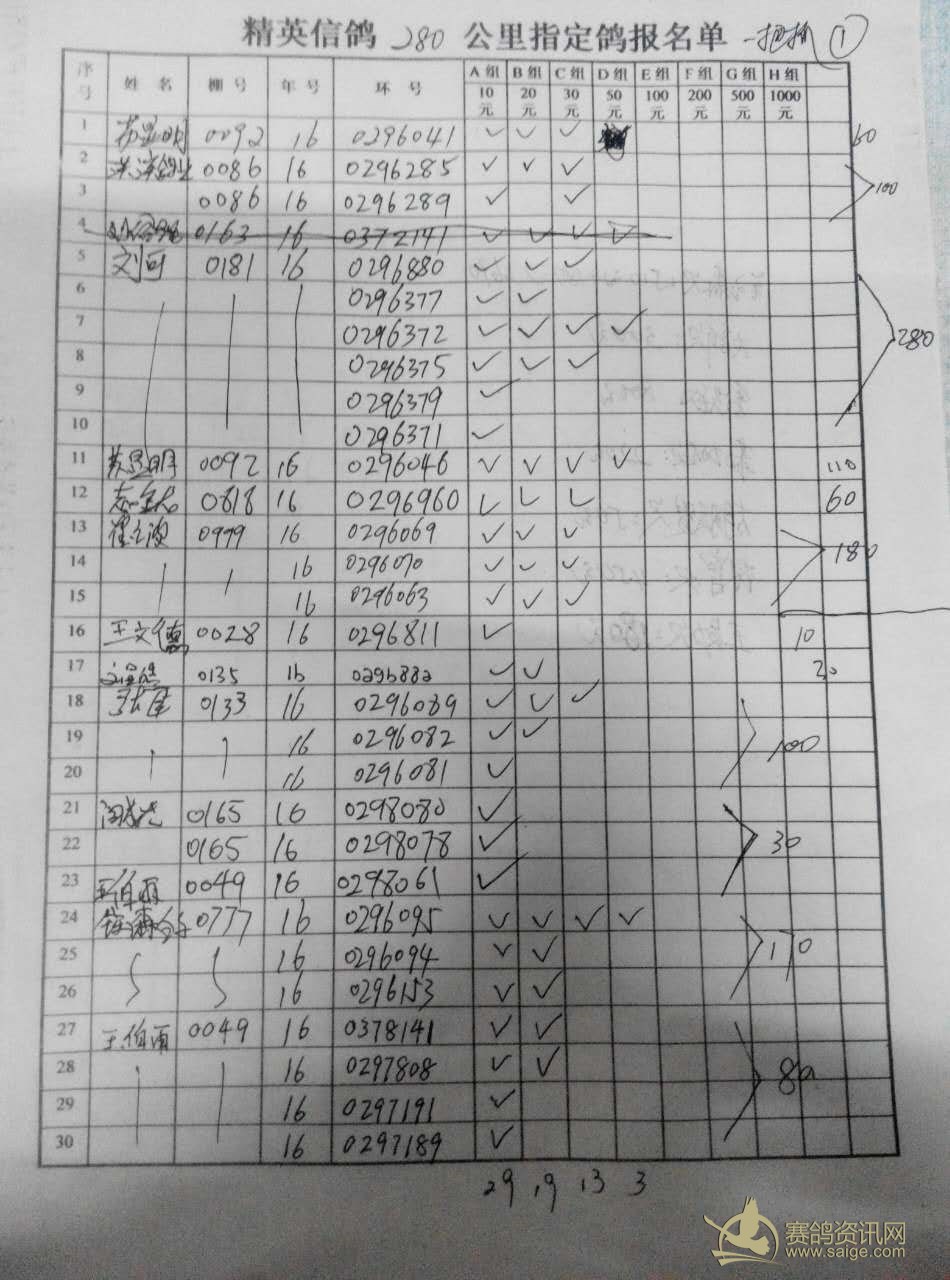 精英信鸽 280 公里指定鸽报名单 ①
序号 姓名 棚号 年号 环号 A组 10元 B组 20元 C组 30元 D组 50元 E组 100元 F组 200元 G组 500元 H组 1000元
1 0092 16 0296041 ✓ ✓ ✓ 60
2 0086 16 0296285 ✓ ✓ ✓
3 0086 16 0296289 ✓ ✓ 100
4 0163 16 0372141 ✓ ✓ ✓ ✓
5 刘可 0181 16 0296880 ✓ ✓ ✓
6 0296377 ✓ ✓
7 0296372 ✓ ✓ ✓ ✓ 280
8 0296375 ✓ ✓ ✓
9 0296379 ✓
10 0296371 ✓
11 0092 16 0296046 ✓ ✓ ✓ ✓ 110
12 0818 16 0296960 ✓ ✓ ✓ 60
13 0999 16 0296069 ✓ ✓ ✓
14 16 0296070 ✓ ✓ ✓ 180
15 16 0296063 ✓ ✓ ✓
16 王文德 0028 16 0296811 ✓ 10
17 0135 16 0296882 ✓ ✓ 30
18 0133 16 0296089 ✓ ✓ ✓
19 16 0296082 ✓ ✓ 100
20 16 0296081 ✓
21 0165 16 0298080 ✓
22 0165 16 0298078 ✓ 30
23 王伯雨 0049 16 0298061 ✓
24 0777 16 0296095 ✓ ✓ ✓ ✓
25 16 0296094 ✓ ✓ 170
26 16 0296153 ✓ ✓
27 王伯雨 0049 16 0378141 ✓ ✓
28 16 0297808 ✓ ✓ 80
29 16 0297191 ✓
30 16 0297189 ✓
29 19 13 3
赛鸽资讯网
www.saige.com